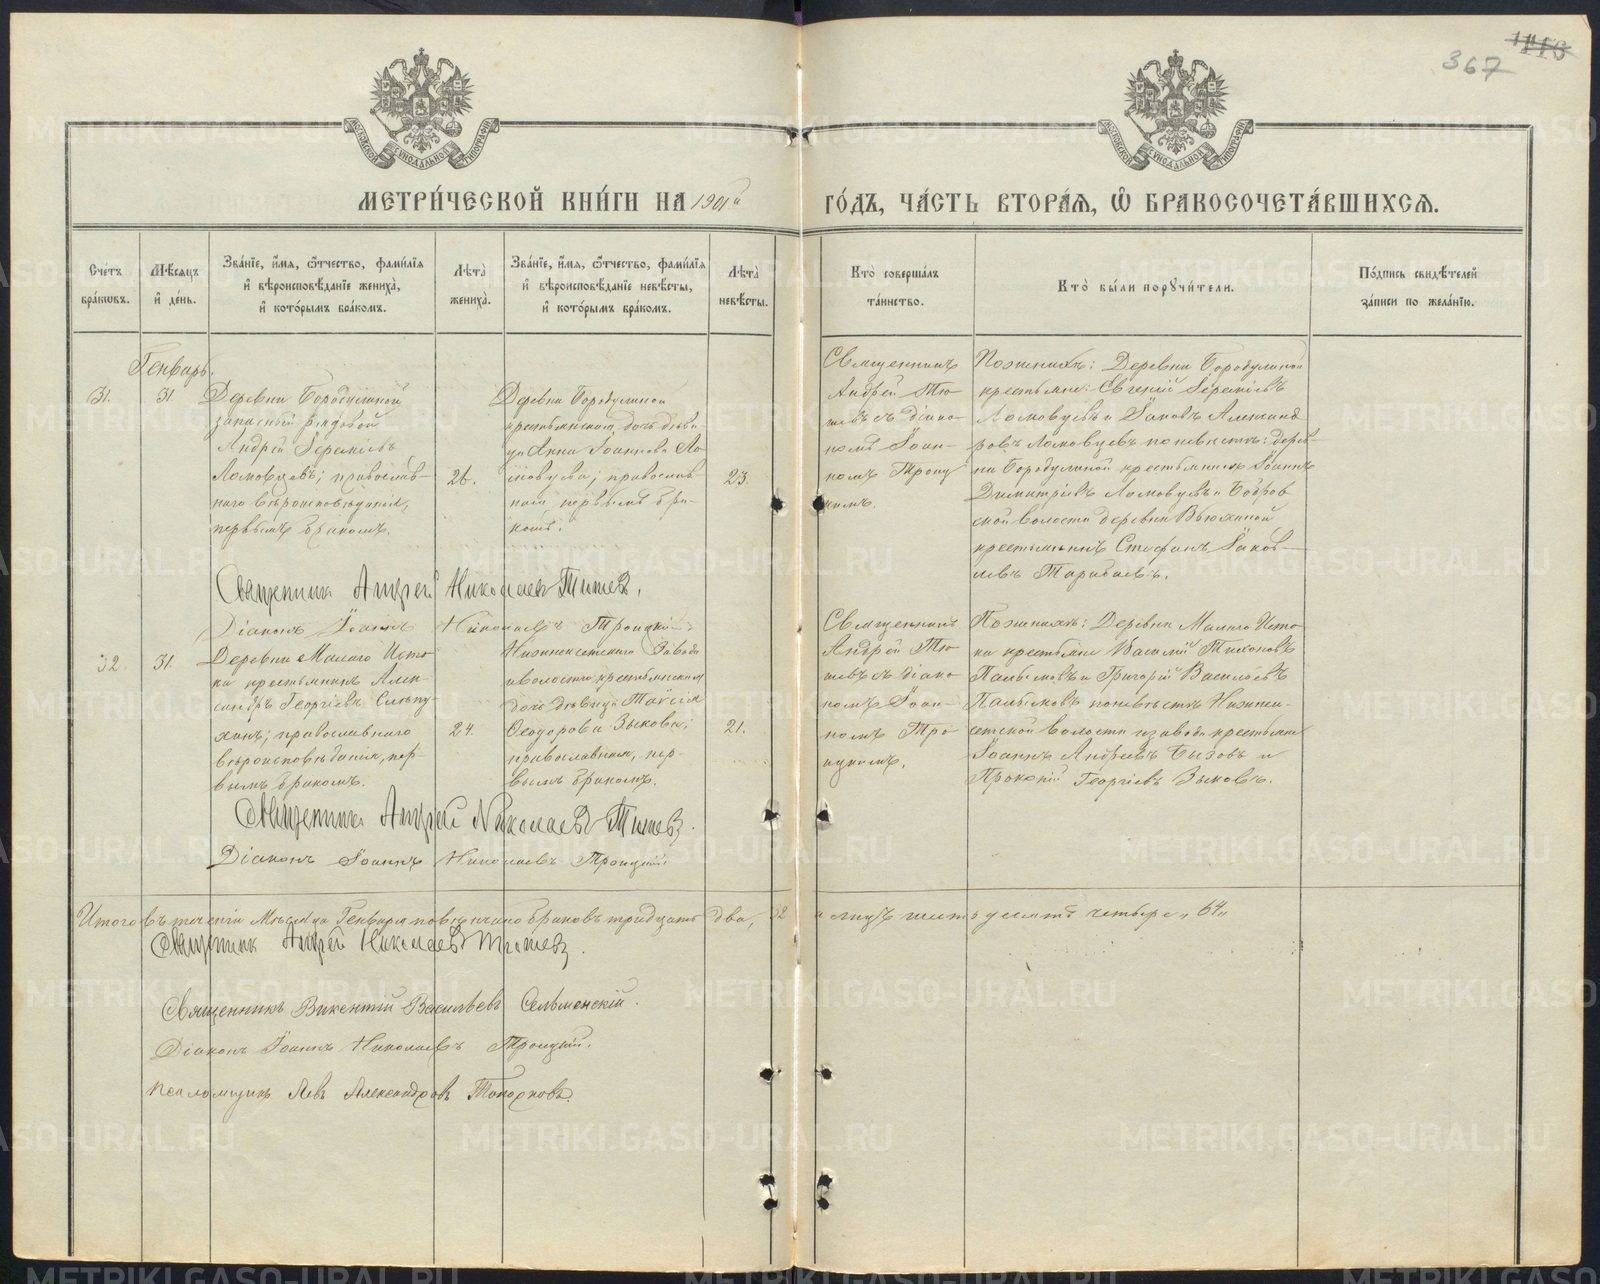 367
МОСКОВСКОЙ СѴНОДАЛЬНОЙ ТИПОГРАФІИ
МОСКОВСКОЙ СѴНОДАЛЬНОЙ ТИПОГРАФІИ
МЕТРИ́ЧЕСКОЙ КНИ́ГИ НА 1901й ГО́ДЪ, ЧА́СТЬ ВТОРА́Я, Ѽ БРАКОСОЧЕТА́ВШИХСЯ.
Сче́тъ
бра́кѡвъ.
Мѣ́сяцъ
и҆ де́нь.
Зва́нїе, и҆́мя, ѻ҆́тчество, фами́лїя
и҆ вѣроисповѣ́данїе жениха̀,
и҆ кото́рымъ бра́комъ.
Лѣта̀
жениха̀.
Зва́нїе, и҆́мя, ѻ҆́тчество, фами́лїя
и҆ вѣроисповѣ́данїе невѣ́сты,
и҆ кото́рымъ бра́комъ.
Лѣта̀
невѣ́сты.
Кто̀ соверша́лъ
та́инство.
Кто̀ бы́ли порꙋчи́тели.
По́дпись свидѣ́телей
за́писи по жела́нїю.
Генварь.
31.
31
Деревни Бородулиной
запасный рядовой
Андрей
Ломовцевъ; православ-
наго вѣроисповѣданія,
первымъ бракомъ.
26.
Деревни Бородулиной
крестьянская дочь дѣви-
ца Анна Іоаннова Ло-
мовцева; православ-
ная, первымъ бра-
комъ.
23.
Священникъ
Андрей Тю-
шевъ съ діако-
номъ Іоан-
номъ Троиц-
кимъ.
По женихѣ: Деревни Бородулиной
крестьяне: Евгеній
Ломовцевъ и Іаковъ Александ-
ровъ Ломовцевъ по невѣстѣ: дерев-
ни Бородулиной крестьянинъ Іоаннъ
Димитріевъ Ломовцевъ и Бобров-
ской волости деревни Вьюхиной
крестьянинъ Стефанъ Іаков-
левъ
Священникъ Андрей Николаевъ Тюшевъ.
Діаконъ Іоаннъ Николаевъ Троицкій
32
31.
Деревни Малаго Исто-
ка крестьянинъ Алек-
сандръ Георгіевъ Слѣпу-
хинъ; православнаго
вѣроисповѣданія, пер-
вымъ бракомъ.
24.
Нижнеисетскаго Завода
и волости крестьянская
дочь дѣвица Таисія
Ѳеодорова Зыкова;
православная, пер-
вымъ бракомъ.
21.
Священникъ
Андрей Тю-
шевъ съ діако-
номъ Іоан-
номъ Тро-
ицкимъ.
По женихѣ: Деревни Малаго Исто-
ка крестьяне Василій Тихоновъ
и Григорій Васильевъ
по невѣстѣ Нижне-
исетской волости и завода крестьяне
Іоаннъ Андреевъ и
Прокопій Георгіевъ Зыковъ.
Священникъ Андрей Николаевъ Тюшевъ.
Діаконъ Іоаннъ Николаевъ Троицкій
Итого въ теченіи Мѣсяца Генваря повѣнчано браковъ тридцать два, 32 и лицъ шестьдесятъ четыре „64„
Священникъ Андрей Николаевъ Тюшевъ.
Священникъ Викентій Васильевъ Сельменскій.
Діаконъ Іоаннъ Николаевъ Троицкій.
Псаломщикъ Левъ Александровъ Топорковъ.
METRIKI.GASO-URAL.RU